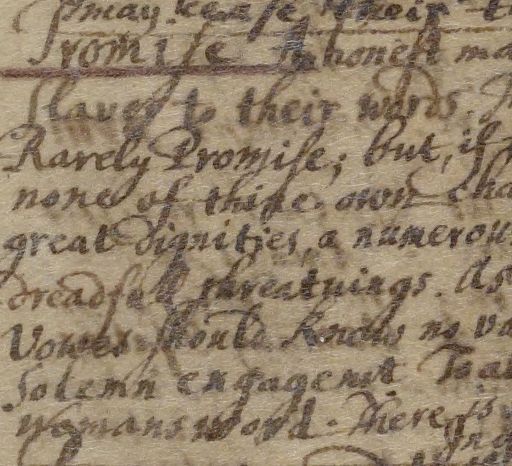 may. ease their
Promise to honest
slaves to their words.
Rarely Promise; but, if
none of thine own
great dignities, a numerous
dreadfull threatnings. As
Vowes should know no
solemn engagemt. To
womans word. There is